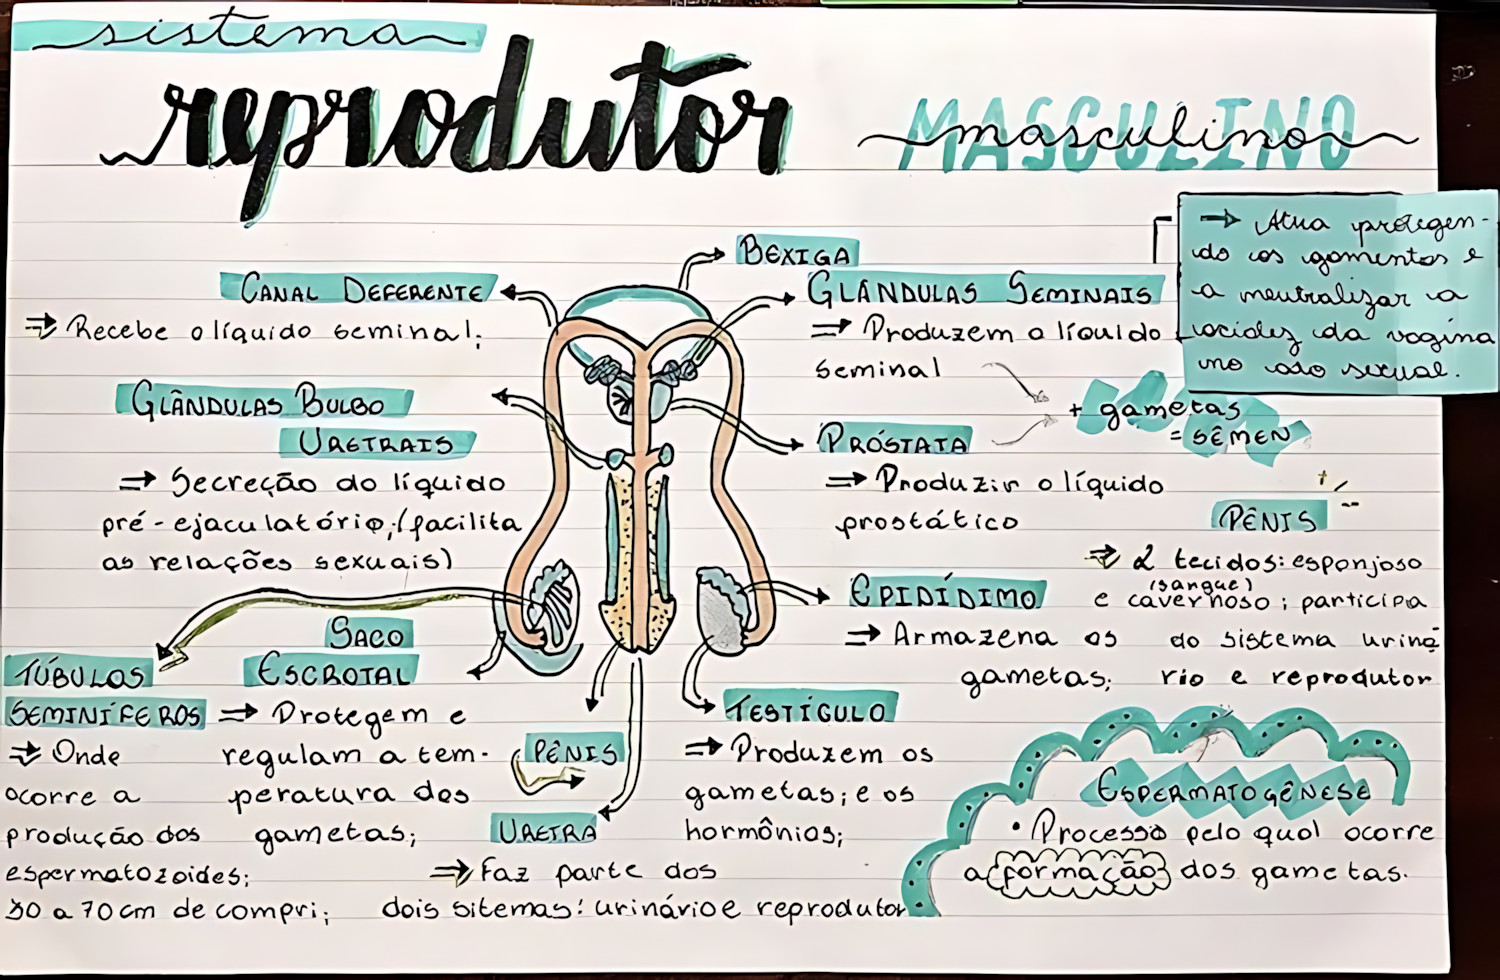 sistema
reprodutor
MASCULINO
masculino
BEXIGA
CANAL DEFERENTE
⇒ Recebe o líquido seminal;
GLÂNDULAS SEMINAIS
⇒ Produzem o líquido
seminal
→ Atua protegen-
do os gamentos e
a neutralizar a
acidez da vagina
no ato sexual.
+ gametas
= SÊMEN
GLÂNDULAS BULBO
URETRAIS
⇒ Secreção do líquido
pré-ejaculatório; (facilita
as relações sexuais)
PRÓSTATA
⇒ Produzir o líquido
prostático
PÊNIS
⇒ 2 tecidos: esponjoso
(sangue)
e cavernoso; participa
do sistema uriná
rio e reprodutor
EPIDÍDIMO
⇒ Armazena os
gametas;
TÚBULOS
SEMINÍFEROS
⇒ Onde
ocorre a
produção dos
espermatozoides;
30 a 70 cm de compri;
SACO
ESCROTAL
⇒ Protegem e
regulam a tem-
peratura dos
gametas;
PÊNIS
URETRA
⇒ Faz parte dos
dois sitemas: urinário e reprodutor
TESTÍCULO
⇒ Produzem os
gametas; e os
hormônios;
ESPERMATOGÊNESE
• Processo pelo qual ocorre
a formação dos gametas.